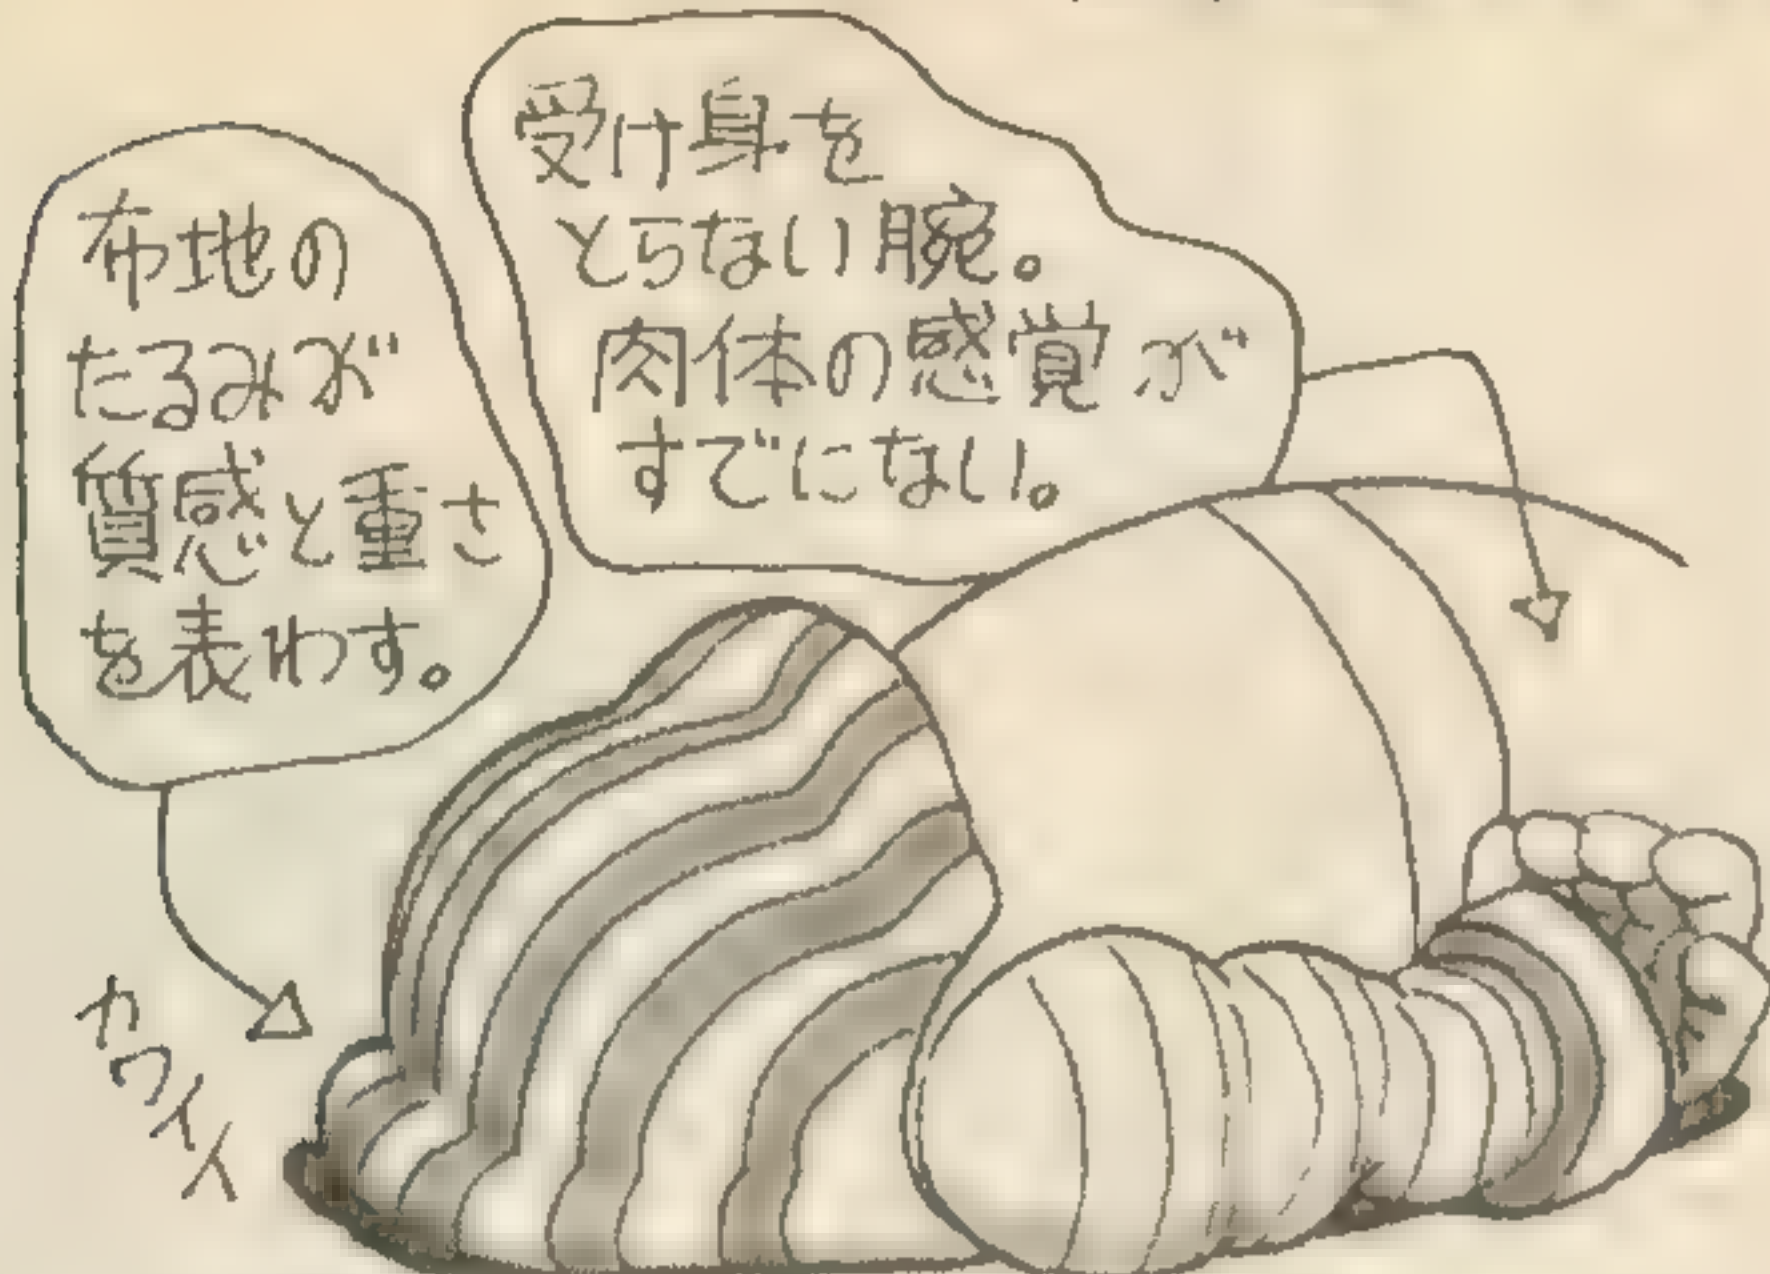 布地の
たるみが
質感と重さ
を表わす。
受け身を
とらない腕。
肉体の感覚が
すでにない。
カワイイ